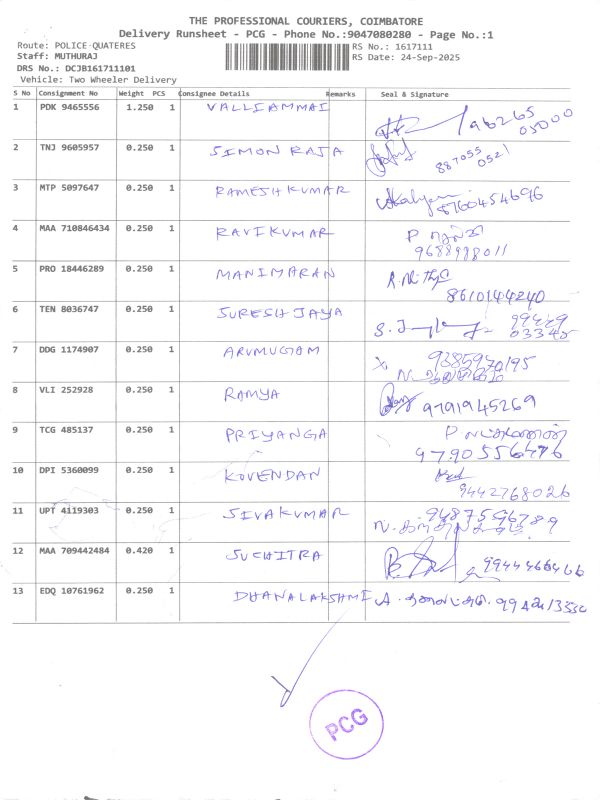 THE PROFESSIONAL COURIERS, COIMBATORE
Delivery Runsheet - PCG - Phone No.:9047080280 - Page No.:1
Route: POLICE-QUATERES RS No.: 1617111
Staff: MUTHURAJ RS Date: 24-Sep-2025
DRS No.: DCJB161711101
Vehicle: Two Wheeler Delivery
S No Consignment No Weight PCS Consignee Details Remarks Seal & Signature
1 PDK 9465556 1.250 1 VALLIAMMAI 96265
03000
2 TNJ 9605957 0.250 1 SIMON RAJA 887055
0521
3 MTP 5097647 0.250 1 RAMESH KUMAR 8760454696
4 MAA 710846434 0.250 1 RAVIKUMAR P
9688998011
5 PRO 18446289 0.250 1 MANIMARAN
8610144240
6 TEN 8036747 0.250 1 SURESH JAYA 99449
03345
7 DDG 1174907 0.250 1 ARUMUGAM 9385970195
8 VLI 252928 0.250 1 RAMYA 9791945269
9 TCG 485137 0.250 1 PRIYANGA P
9790556476
10 DPI 5360099 0.250 1 KOVENDAN
9442768026
11 UPT 4119303 0.250 1 SIVAKUMAR 9487596789
12 MAA 709442484 0.420 1 SUCHITRA 9944466466
13 EDQ 10761962 0.250 1 DHANALAKSHMI
PCG